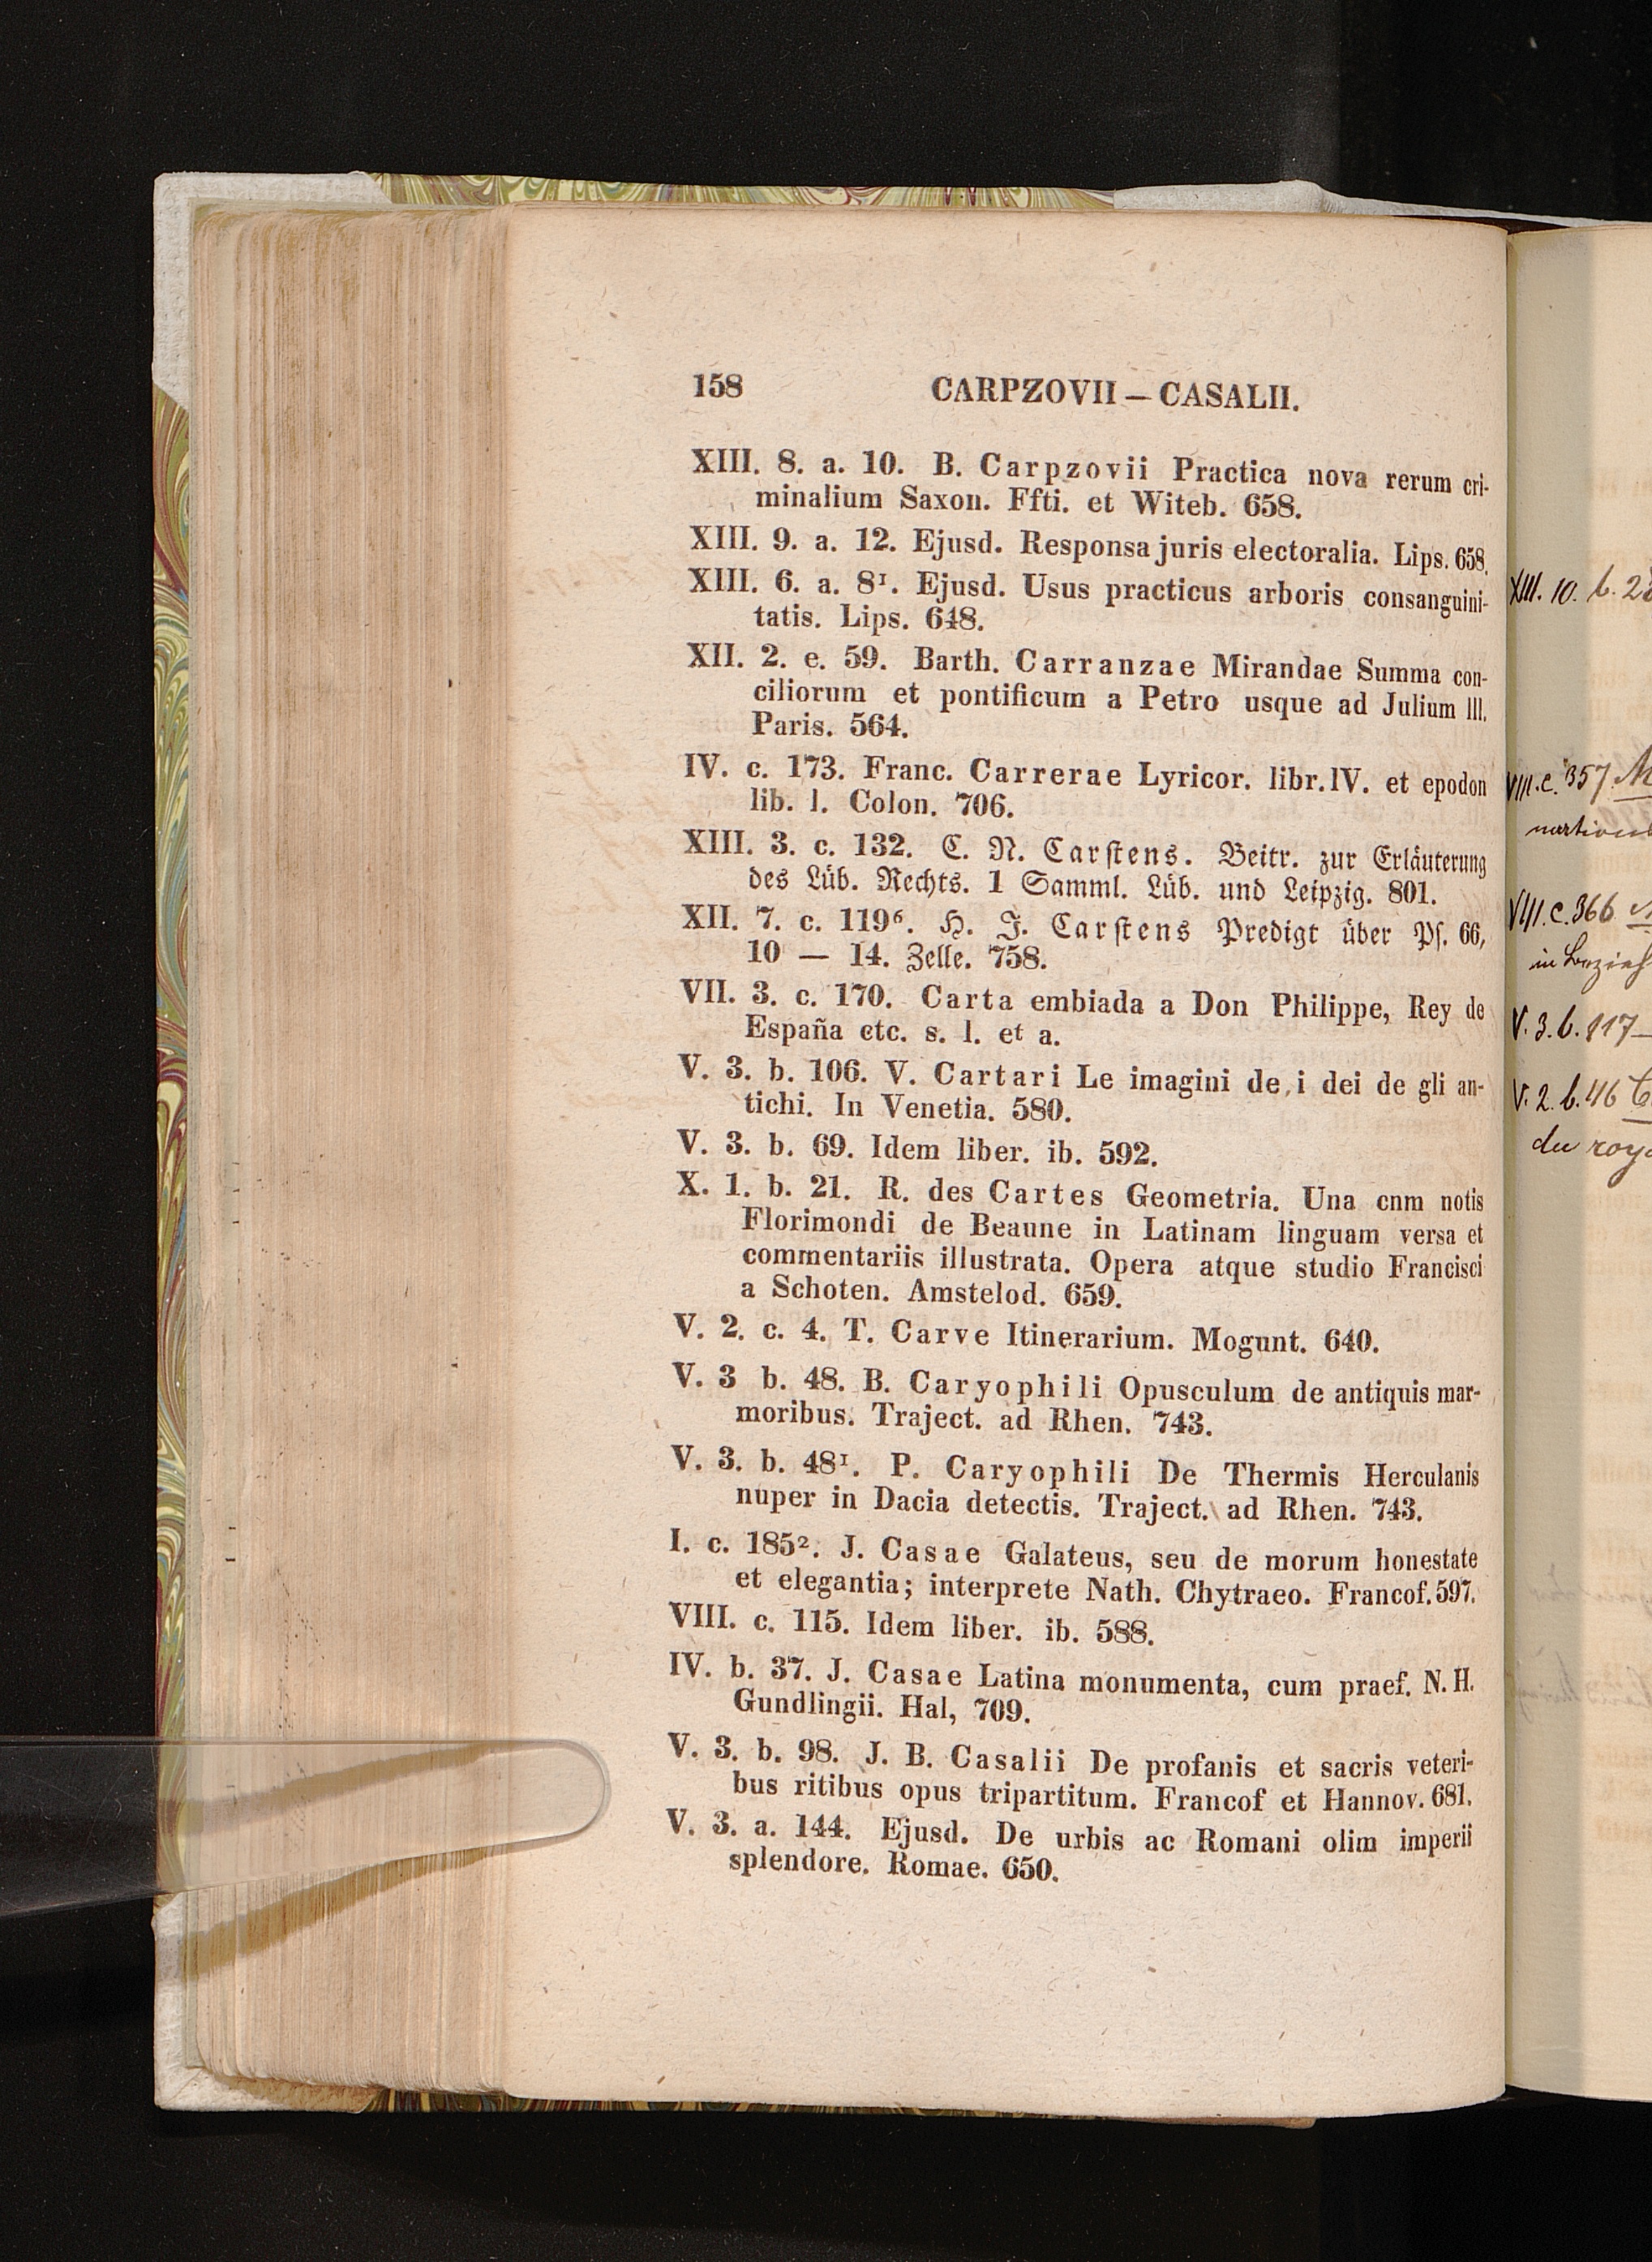 158 CARPZOVII — CASALII.
XIII. 8. a. 10. B. Carpzovii Practica nova rerum cri-
minalium Saxon. Ffti. et Witeb. 658.
XIII. 9. a. 12. Ejusd. Responsa juris electoralia. Lips. 658.
XIII. 6. a. 8¹. Ejusd. Usus practicus arboris consanguini-
tatis. Lips. 648.
XII. 2. e. 59. Barth. Carranzae Mirandae Summa con-
ciliorum et pontificum a Petro usque ad Julium III.
Paris. 564.
IV. c. 173. Franc. Carrerae Lyricor. libr. IV. et epodon
lib. I. Colon. 706.
XIII. 3. c. 132. C. N. Carſtens. Beitr. zur Erläuterung
des Lüb. Rechts. 1 Samml. Lüb. und Leipzig. 801.
XII. 7. c. 119⁶. H. J. Carſtens Predigt über Pſ. 66,
10 — 14. Zelle. 758.
VII. 3. c. 170. Carta embiada a Don Philippe, Rey de
España etc. s. l. et a.
V. 3. b. 106. V. Cartari Le imagini de, i dei de gli an-
tichi. In Venetia. 580.
V. 3. b. 69. Idem liber. ib. 592.
X. 1. b. 21. R. des Cartes Geometria. Una cnm notis
Florimondi de Beaune in Latinam linguam versa et
commentariis illustrata. Opera atque studio Francisci
a Schoten. Amstelod. 659.
V. 2. c. 4. T. Carve Itinerarium. Mogunt. 640.
V. 3 b. 48. B. Caryophili Opusculum de antiquis mar-
moribus. Traject. ad Rhen. 743.
V. 3. b. 48¹. P. Caryophili De Thermis Herculanis
nuper in Dacia detectis. Traject. ad Rhen. 743.
I. c. 185². J. Casae Galateus, seu de morum honestate
et elegantia; interprete Nath. Chytraeo. Francof. 597.
VIII. c. 115. Idem liber. ib. 588.
IV. b. 37. J. Casae Latina monumenta, cum praef. N. H.
Gundlingii. Hal, 709.
V. 3. b. 98. J. B. Casalii De profanis et sacris veteri-
bus ritibus opus tripartitum. Francof et Hannov. 681.
V. 3. a. 144. Ejusd. De urbis ac Romani olim imperii
splendore. Romae. 650.
XIII. 10. b.
VIII. c. 357.
VIII. c. 366
in
V. 3. b. 117
V. 2. b. 46
du